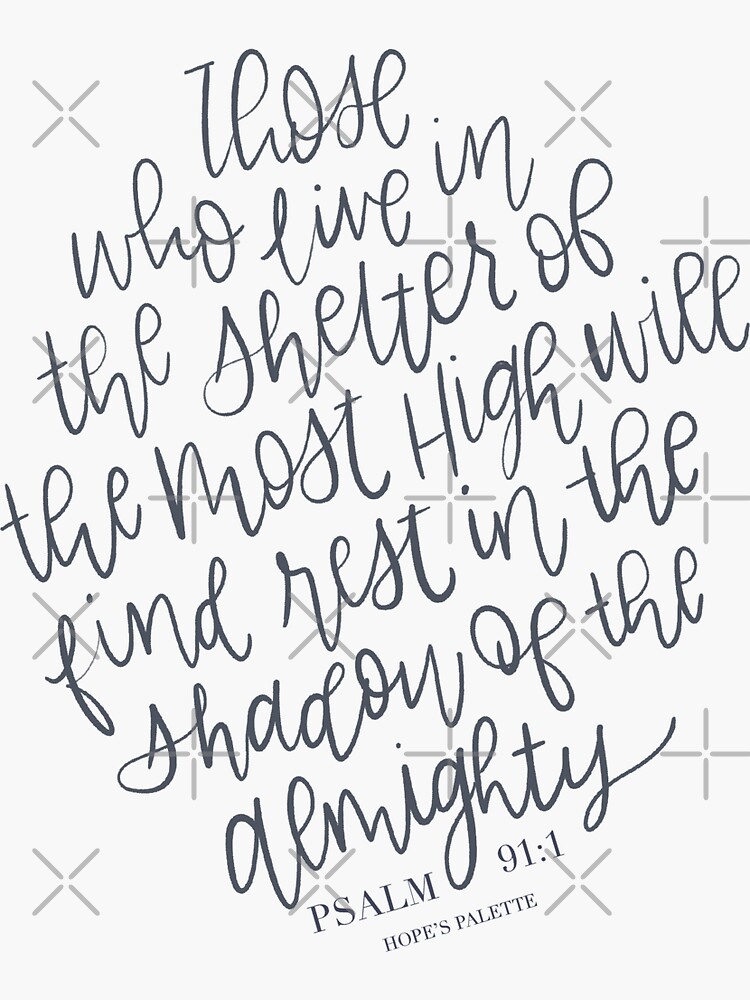 Those
who live in
the shelter of
the Most High will
find rest in the
shadow of the
almighty
PSALM 91:1
HOPE'S PALETTE